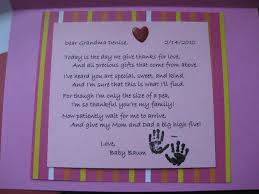 Dear Grandma Denise, 2/14/2010
Today is the day we give thanks for love,
And all precious gifts that come from above.
I've heard you are special, sweet, and kind
And I'm sure that this is what I'll find.
For though I'm only the size of a pea,
I'm so thankful you're my family!
Now patiently wait for me to arrive,
And give my Mom and Dad a big high five!
Love,
Baby Baum